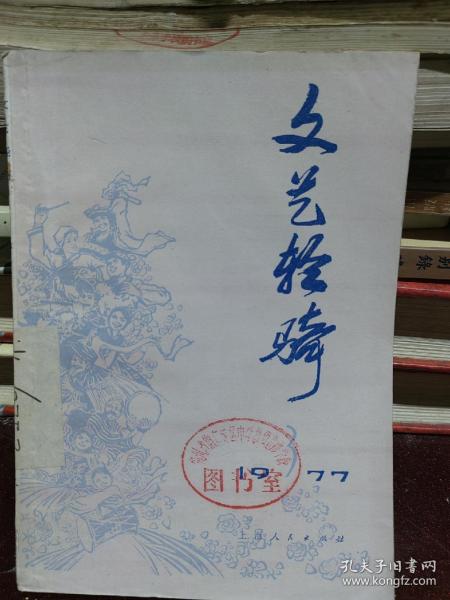 文艺轻骑
图书室
1977
上海人民出版社
别
錄
孔夫子旧书网
www.kongfz.com